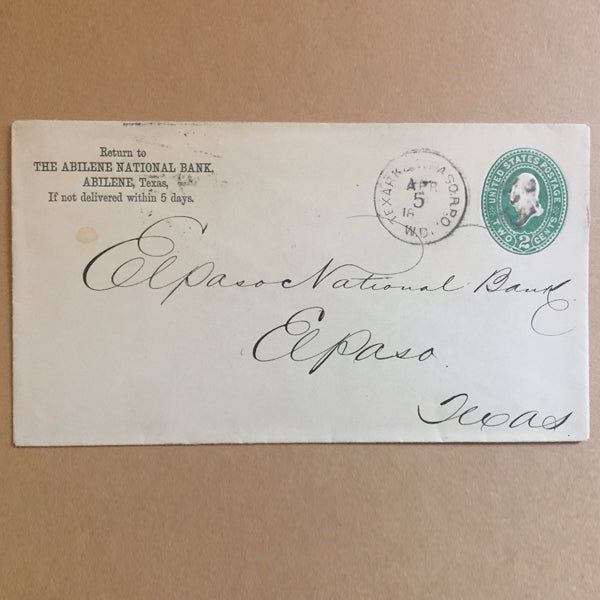 Return to
THE ABILENE NATIONAL BANK,
ABILENE, Texas,
If not delivered within 5 days.
TEXAR. & EL PASO. R.P.O.
APR
5
18
W.D.
UNITED STATES POSTAGE
TWO 2 CENTS
El paso National Bank
El paso
Texas